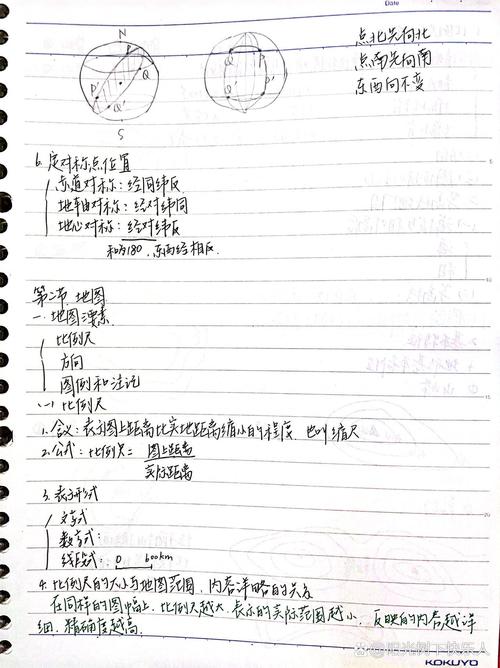 N
P
Q
P'
Q'
S
Q
P
Q'
P'
点北先向北
点南先向南
东西向不变
6. 定对称点位置
赤道对称：经同纬反
地轴对称：经对纬同
地心对称：经对纬反
和为180，东西经相反.
第二节 地图
一. 地图三要素
比例尺
方向
图例和注记
(一) 比例尺
1. 含义：表示图上距离比实地距离缩小的程度 也叫缩尺
2. 公式：比例尺= 图上距离
实际距离
3. 表示形式
文字式
数字式：
线段式： 0 600km
4. 比例尺的大小与地图范围，内容详略的关系
在同样的图幅上，比例尺越大，表示的实际范围越小，反映的内容越详
细，精确度越高.
KOKUYO